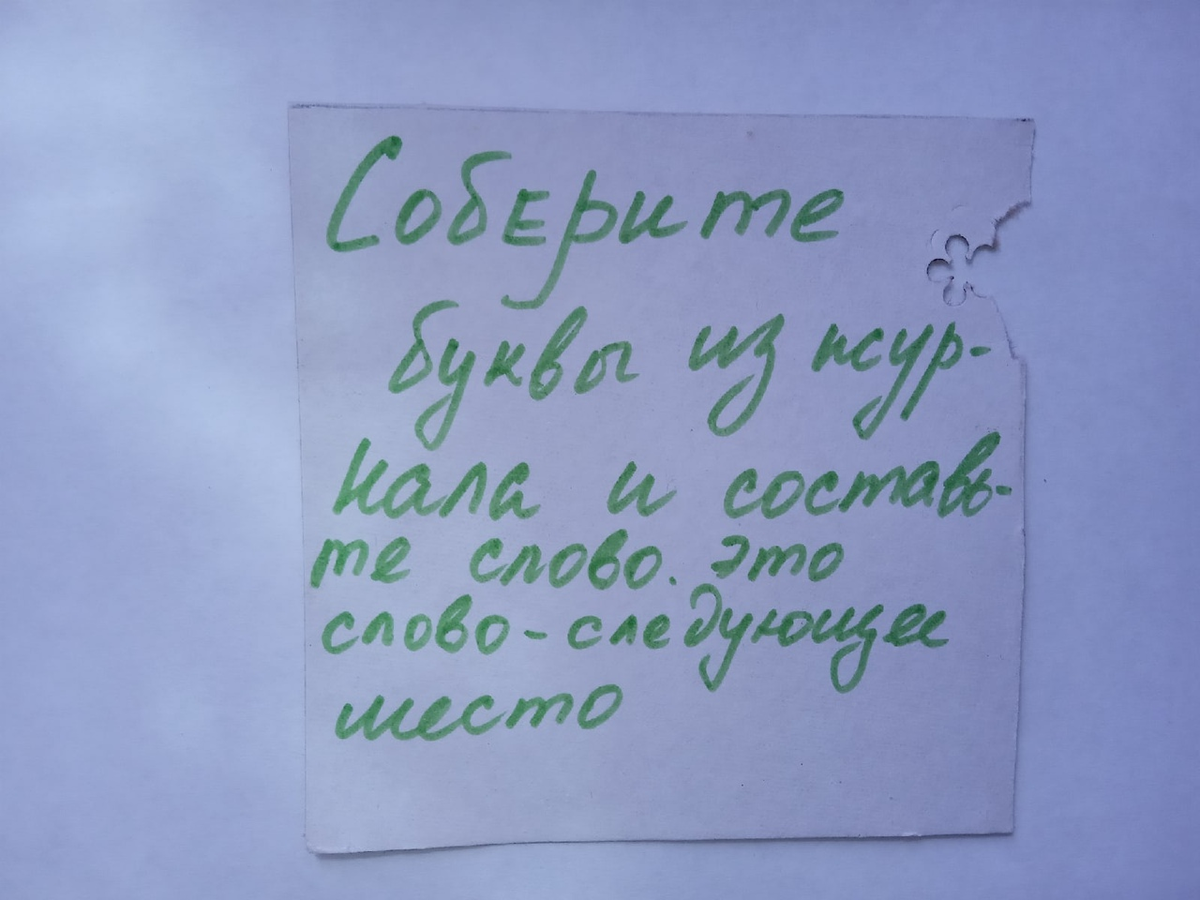 Соберите
буквы из жур-
нала и составь-
те слово. Это
слово-следующее
место